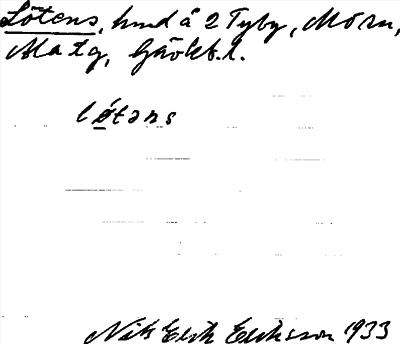 Lötens, hmd å 2 Tyby, Mom,
Matg, Gävleb. l.
lø̀tǝns
Nils Erik Eriksson 1933